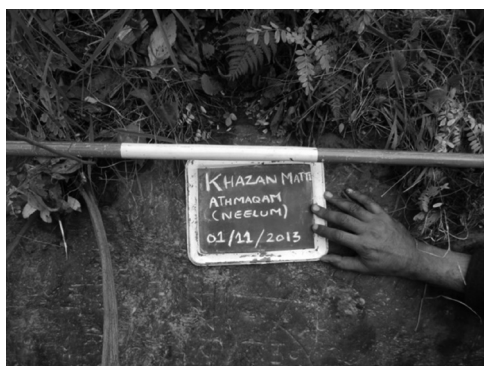 KHAZAN MATTI
ATHMAQAM
(NEELUM)
01/11/2013